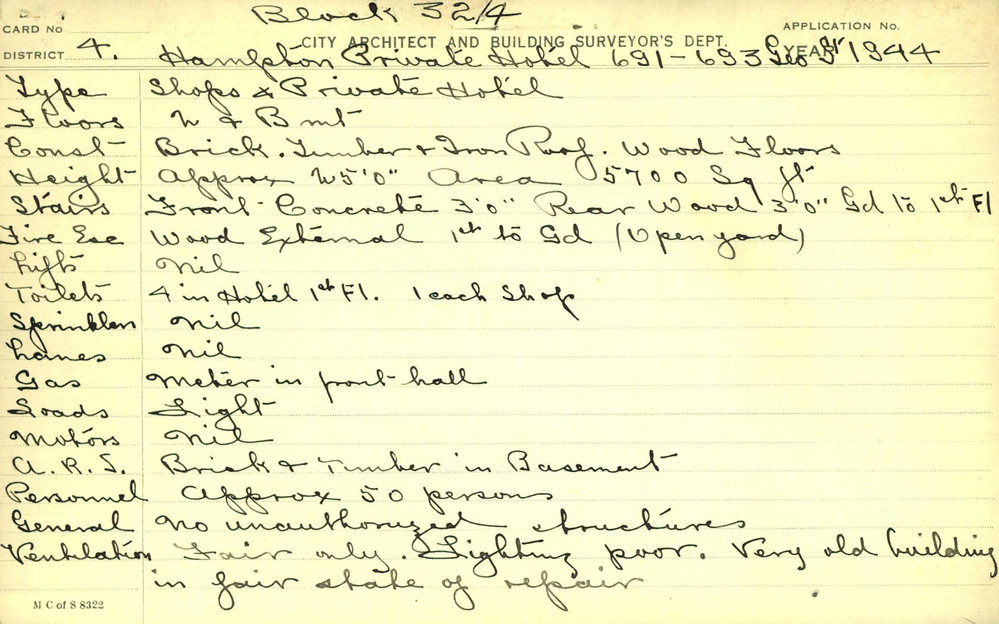 Block 32/4
CARD No APPLICATION No.
CITY ARCHITECT AND BUILDING SURVEYOR'S DEPT.
DISTRICT 4. Hampton Private Hotel 691-693 Geo St YEAR 1944
Type Shops & Private Hotel
Floors 2 & Bmt
Const Brick. Timber & Iron Roof. Wood Floors
Height Approx 25'0" Area 5700 Sq ft
Stairs Front Concrete 3'0" Rear Wood 3'0" Gd to 1st Fl
Fire Esc Wood External 1st to Gd (Open yard)
Lifts Nil
Toilets 4 in Hotel 1st Fl. 1 each Shop
Sprinklers Nil
Lanes Nil
Gas Meter in front hall
Loads Light
Motors Nil
A.R.S. Brick & Timber in Basement
Personnel Approx 50 persons
General No unauthorized structures
Ventilation Fair only. Lighting poor. Very old building
in fair state of repair
M C of S 8322